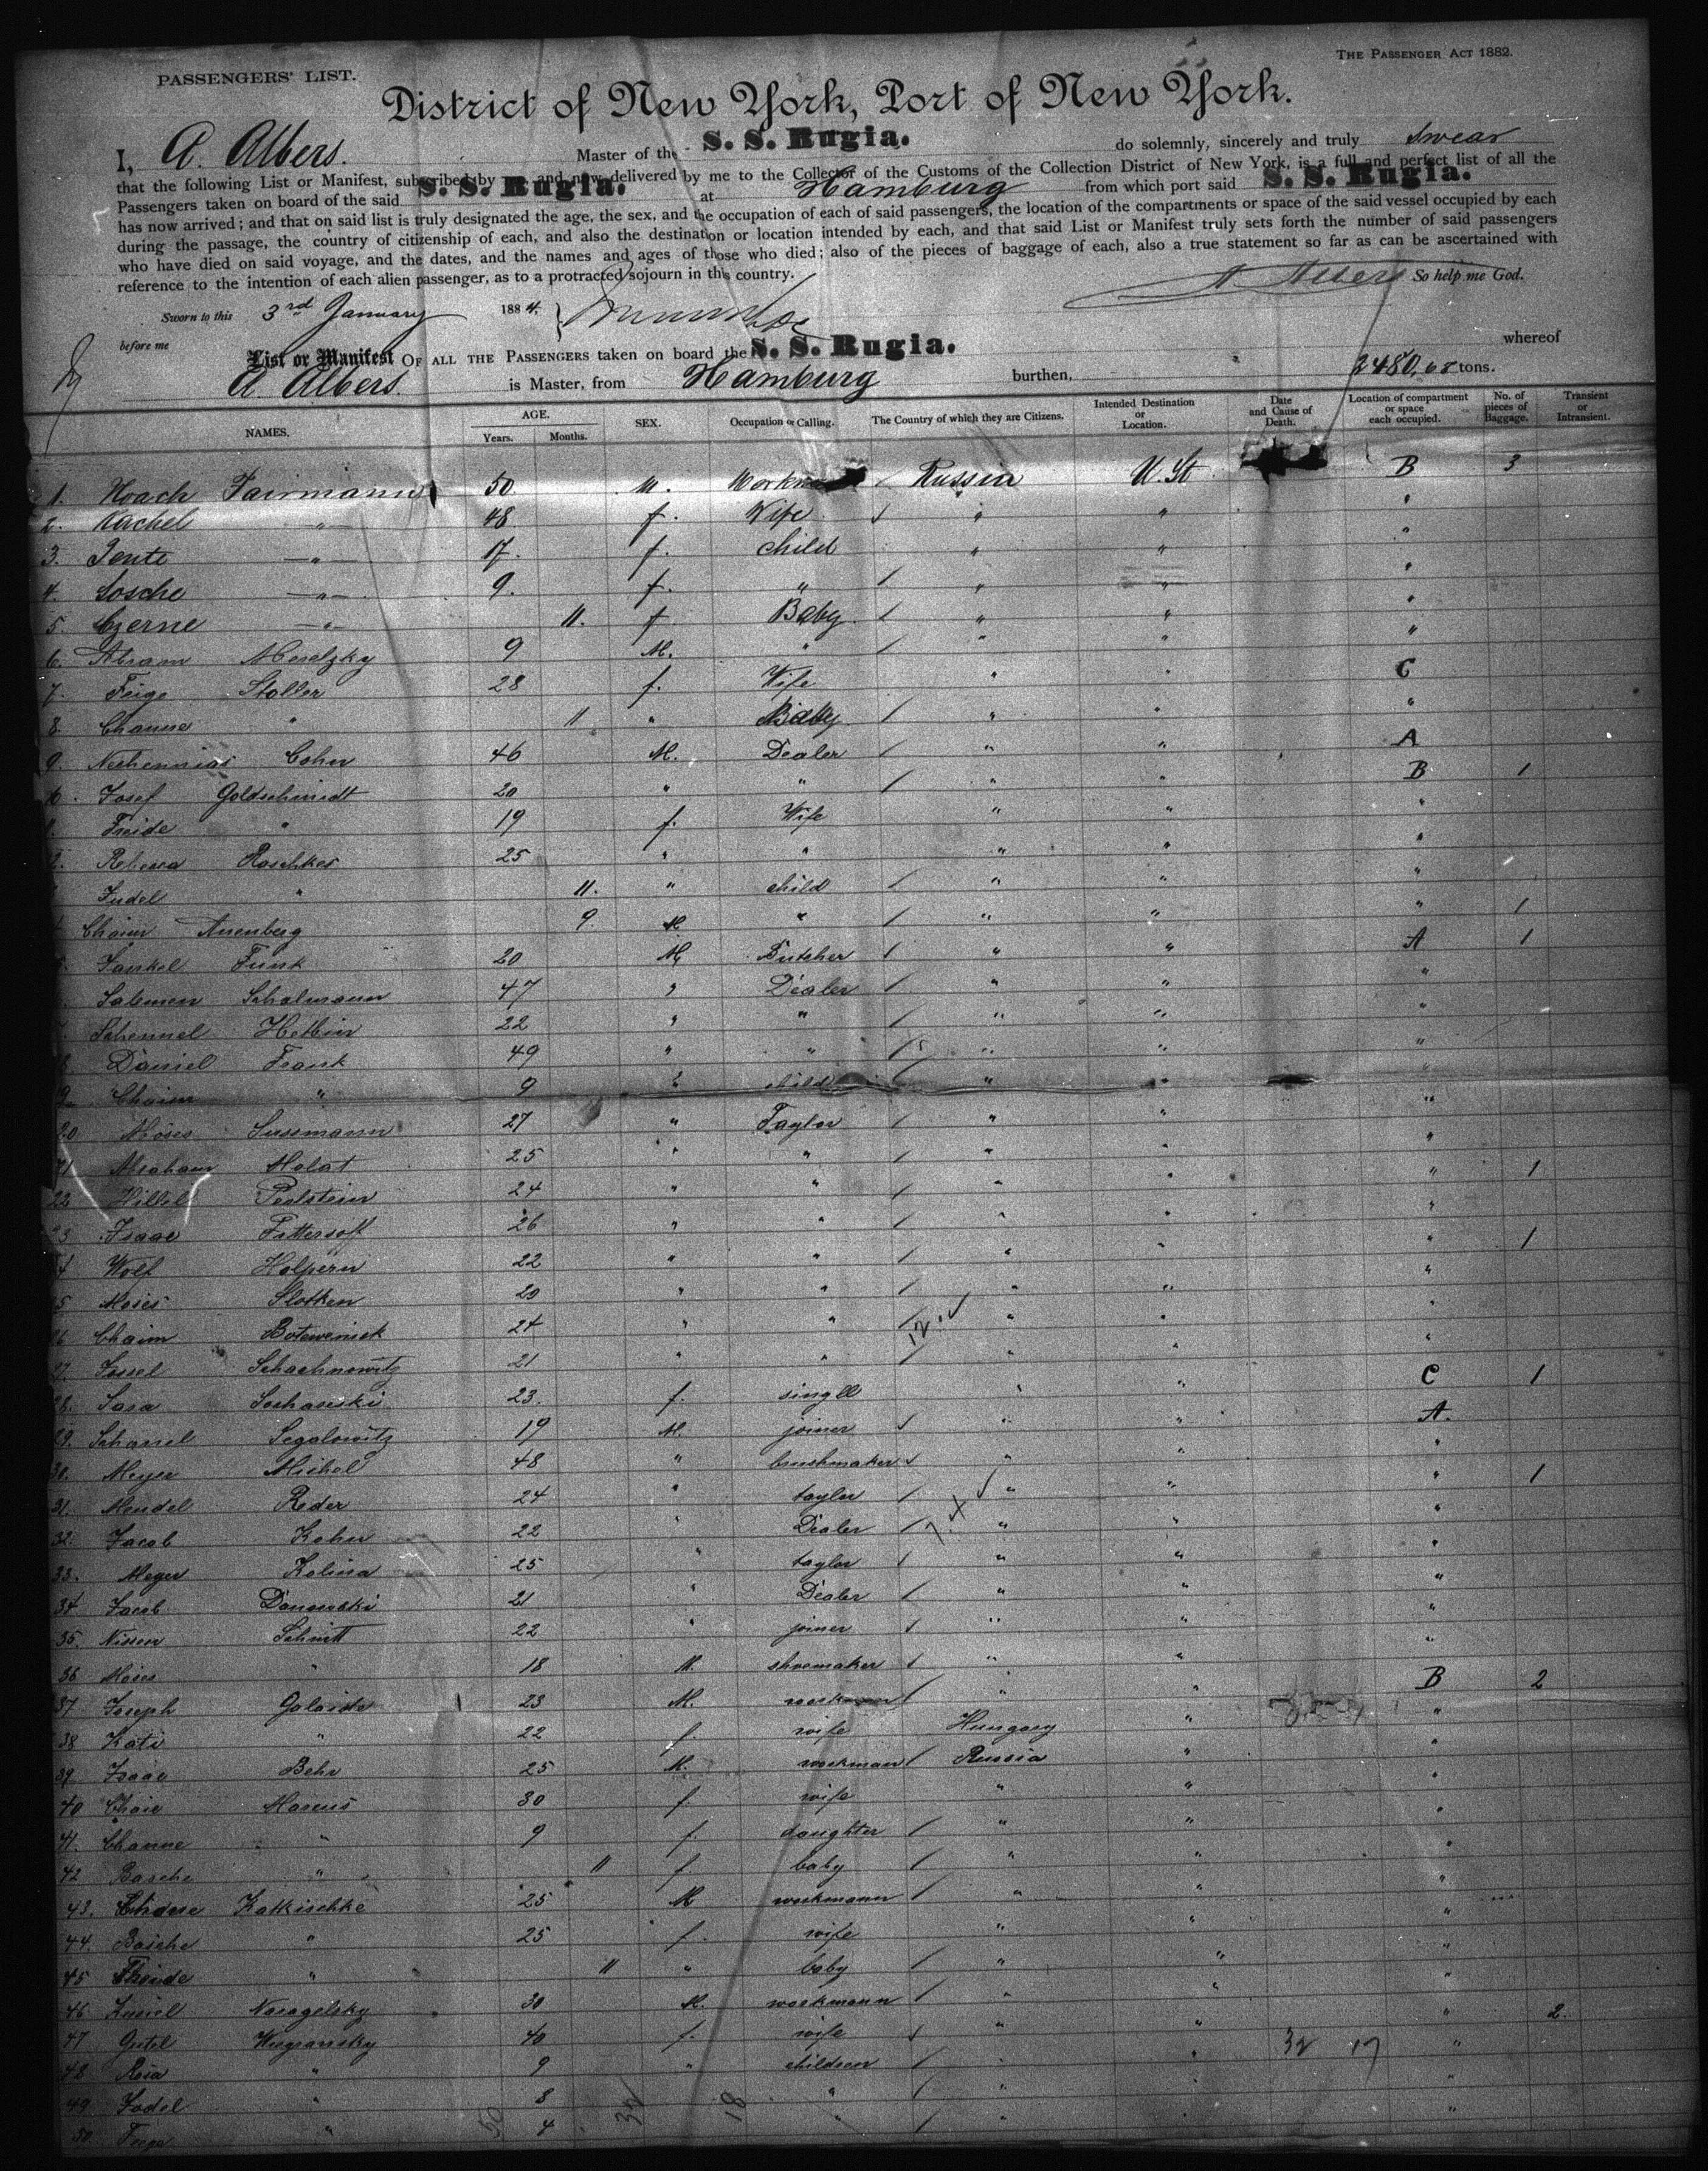 PASSENGERS' LIST.
THE PASSENGER ACT 1882.
District of New York, Port of New York.
I, A. Albers. Master of the S. S. Rugia. do solemnly, sincerely and truly swear
that the following List or Manifest, subscribed by and now delivered by me to the Collector of the Customs of the Collection District of New York, is a full and perfect list of all the
Passengers taken on board of the said S. S. Rugia. at Hamburg from which port said S. S. Rugia.
has now arrived; and that on said list is truly designated the age, the sex, and the occupation of each of said passengers, the location of the compartments or space of the said vessel occupied by each
during the passage, the country of citizenship of each, and also the destination or location intended by each, and that said List or Manifest truly sets forth the number of said passengers
who have died on said voyage, and the dates, and the names and ages of those who died; also of the pieces of baggage of each, also a true statement so far as can be ascertained with
reference to the intention of each alien passenger, as to a protracted sojourn in this country.
A Albers So help me God.
Sworn to this 3rd January 1884.
before me
List or Manifest OF ALL THE PASSENGERS taken on board the S. S. Rugia. whereof
A. Albers. is Master, from Hamburg burthen, 2480,68 tons.
NAMES. AGE. Years. Months. SEX. Occupation or Calling. The Country of which they are Citizens. Intended Destination or Location. Date and Cause of Death. Location of compartment or space each occupied. No. of pieces of Baggage. Transient or Intransient.
1. Noach 50 M. Russia U. St B 3
2. Rachel " 48 f. Wife " " "
3. Jente " 17. f. child " " "
4. Sosche " 9. f. " " " "
5. Czerne " 11. f Baby " " "
6. Abram 9 M. " " " "
7. Feige Stoller 28 f. Wife " " C
8. Channe " 11 " Baby " " "
9. Cohn 46 M. Dealer " " A
10. Josef Goldschmidt 20 " " " " B 1
Freide " 19 f. Wife " " "
Raschkes 25 " " " " "
Judel " 11. " child " " "
Chaim 9. M. " " " " 1
Jankel Funk 20 M. Butcher " " A 1
Schalmann 47 " Dealer " " "
22 " " " " "
Daniel Frank 49 " " " " "
19. Chaim " 9 " child " " "
20 Moses Sussmann 27 " Taylor " " "
21 Abraham 25 " " " " "
22 Hillel Perlstein 24 " " " " " 1
23 Isaac 26 " " " " "
Wolf Halpern 22 " " " " " 1
Moses Slotken 20 " " " " "
26 Chaim 24 " " " " "
27. Jossel Schachnowitz 21 " " " " "
28. Sara 23. f. single " " C 1
29. Segalowitz 19 M. joiner " " A.
30. Meyer Michel 48 " brushmaker " " "
31. Mendel Reder 24 " taylor " " " 1
32. Jacob Kohn 22 " Dealer " " "
33. Meyer Kolina 25 " taylor " " "
34 Jacob 21 " Dealer " " "
35. Nissen Schnitt 22 " joiner " " "
36 Moses " 18 M. shoemaker " " "
37 Joseph 23 M. workman " " B 2
38 Kati " 22 f. wife Hungary " "
39 Isaac Behr 25 M. workman Russia " "
40 Marcus 30 f. wife " " "
41. Channe " 9 f. daughter " " "
42 Basche " 11 f. baby " " "
43. Katkischke 25 M workmann " " "
44. Basche " 25 f. wife " " "
45 " 11 " baby " " "
46 30 M. workmann " " "
47 Gutel 40 f. wife " " " 2.
48 Rosa " 9 " children " " "
49. Jodel " 8 " " " "
50. Feige " 4 " " " "
50 32 18
32 17